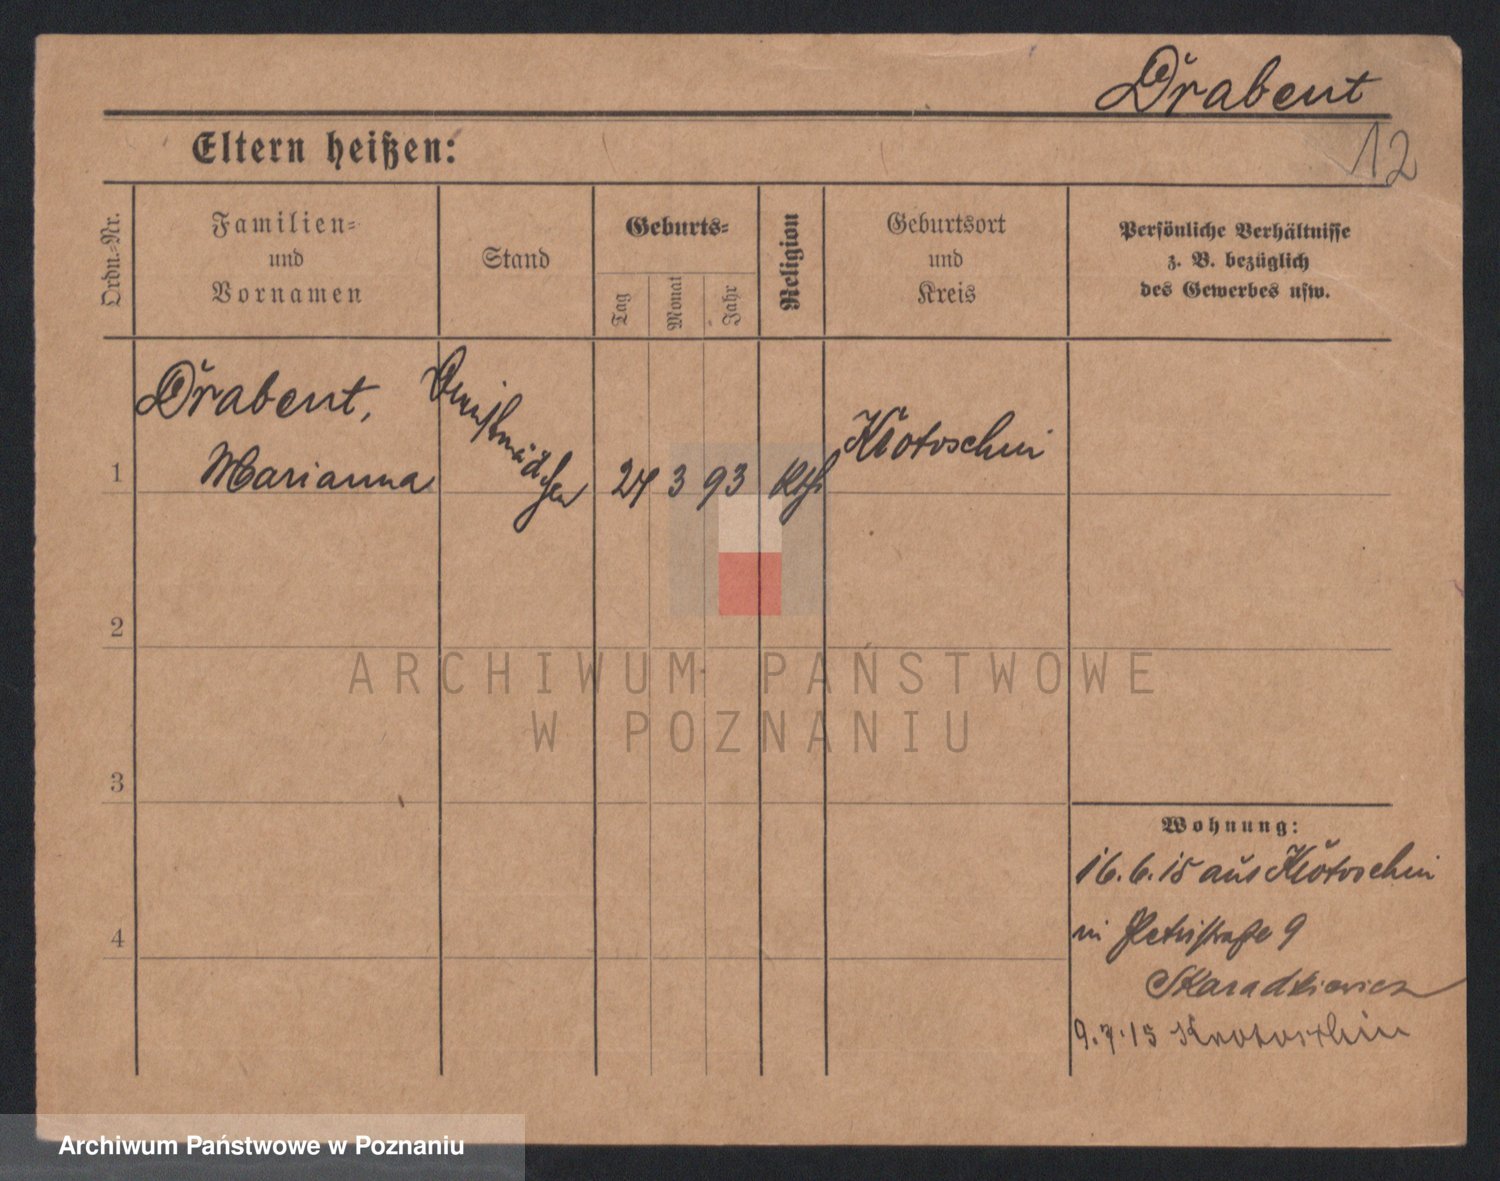 Drabent
12
Eltern heißen:
Ordn.-Nr.
Familien-
und
Vornamen
Stand
Geburts-
Tag
Monat
Jahr
Religion
Geburtsort
und
Kreis
Persönliche Verhältnisse
z. B. bezüglich
des Gewerbes usw.
1
Drabent,
Marianna
Dienstmädchen
24 3 93
Kth
Krotoschin
2
3
4
Wohnung:
16.6.15 aus Krotoschin
in Petristraße 9
Skaradkiewicz
9.7.15 Krotoschin
ARCHIWUM PAŃSTWOWE
W POZNANIU
Archiwum Państwowe w Poznaniu